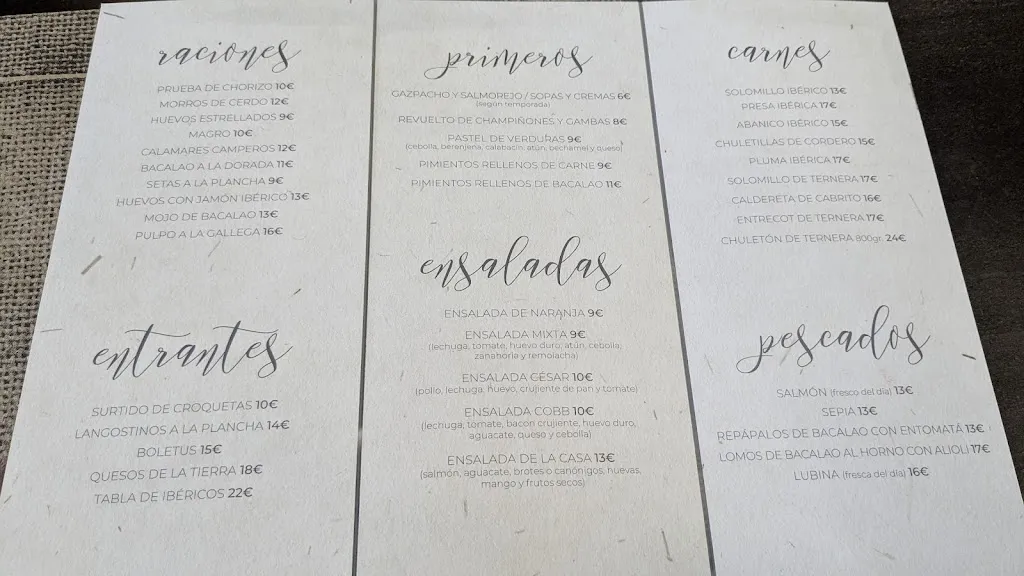 raciones
PRUEBA DE CHORIZO 10€
MORROS DE CERDO 12€
HUEVOS ESTRELLADOS 9€
MAGRO 10€
CALAMARES CAMPEROS 12€
BACALAO A LA DORADA 11€
SETAS A LA PLANCHA 9€
HUEVOS CON JAMÓN IBÉRICO 13€
MOJO DE BACALAO 13€
PULPO A LA GALLEGA 16€
entrantes
SURTIDO DE CROQUETAS 10€
LANGOSTINOS A LA PLANCHA 14€
BOLETUS 15€
QUESOS DE LA TIERRA 18€
TABLA DE IBÉRICOS 22€
primeros
GAZPACHO Y SALMOREJO / SOPAS Y CREMAS 6€
(según temporada)
REVUELTO DE CHAMPIÑONES Y GAMBAS 8€
PASTEL DE VERDURAS 9€
(cebolla, berenjena, calabacín, atún, bechamel y queso)
PIMIENTOS RELLENOS DE CARNE 9€
PIMIENTOS RELLENOS DE BACALAO 11€
ensaladas
ENSALADA DE NARANJA 9€
ENSALADA MIXTA 9€
(lechuga, tomate, huevo duro, atún, cebolla,
zanahoria y remolacha)
ENSALADA CÉSAR 10€
(pollo, lechuga, huevo, crujiente de pan y tomate)
ENSALADA COBB 10€
(lechuga, tomate, bacon crujiente, huevo duro,
aguacate, queso y cebolla)
ENSALADA DE LA CASA 13€
(salmón, aguacate, brotes o canónigos, huevas,
mango y frutos secos)
carnes
SOLOMILLO IBÉRICO 13€
PRESA IBÉRICA 17€
ABANICO IBÉRICO 15€
CHULETILLAS DE CORDERO 15€
PLUMA IBÉRICA 17€
SOLOMILLO DE TERNERA 17€
CALDERETA DE CABRITO 16€
ENTRECOT DE TERNERA 17€
CHULETÓN DE TERNERA 800gr. 24€
pescados
SALMÓN (fresco del día) 13€
SEPIA 13€
REPÁPALOS DE BACALAO CON ENTOMATÁ 13€
LOMOS DE BACALAO AL HORNO CON ALIOLI 17€
LUBINA (fresca del día) 16€